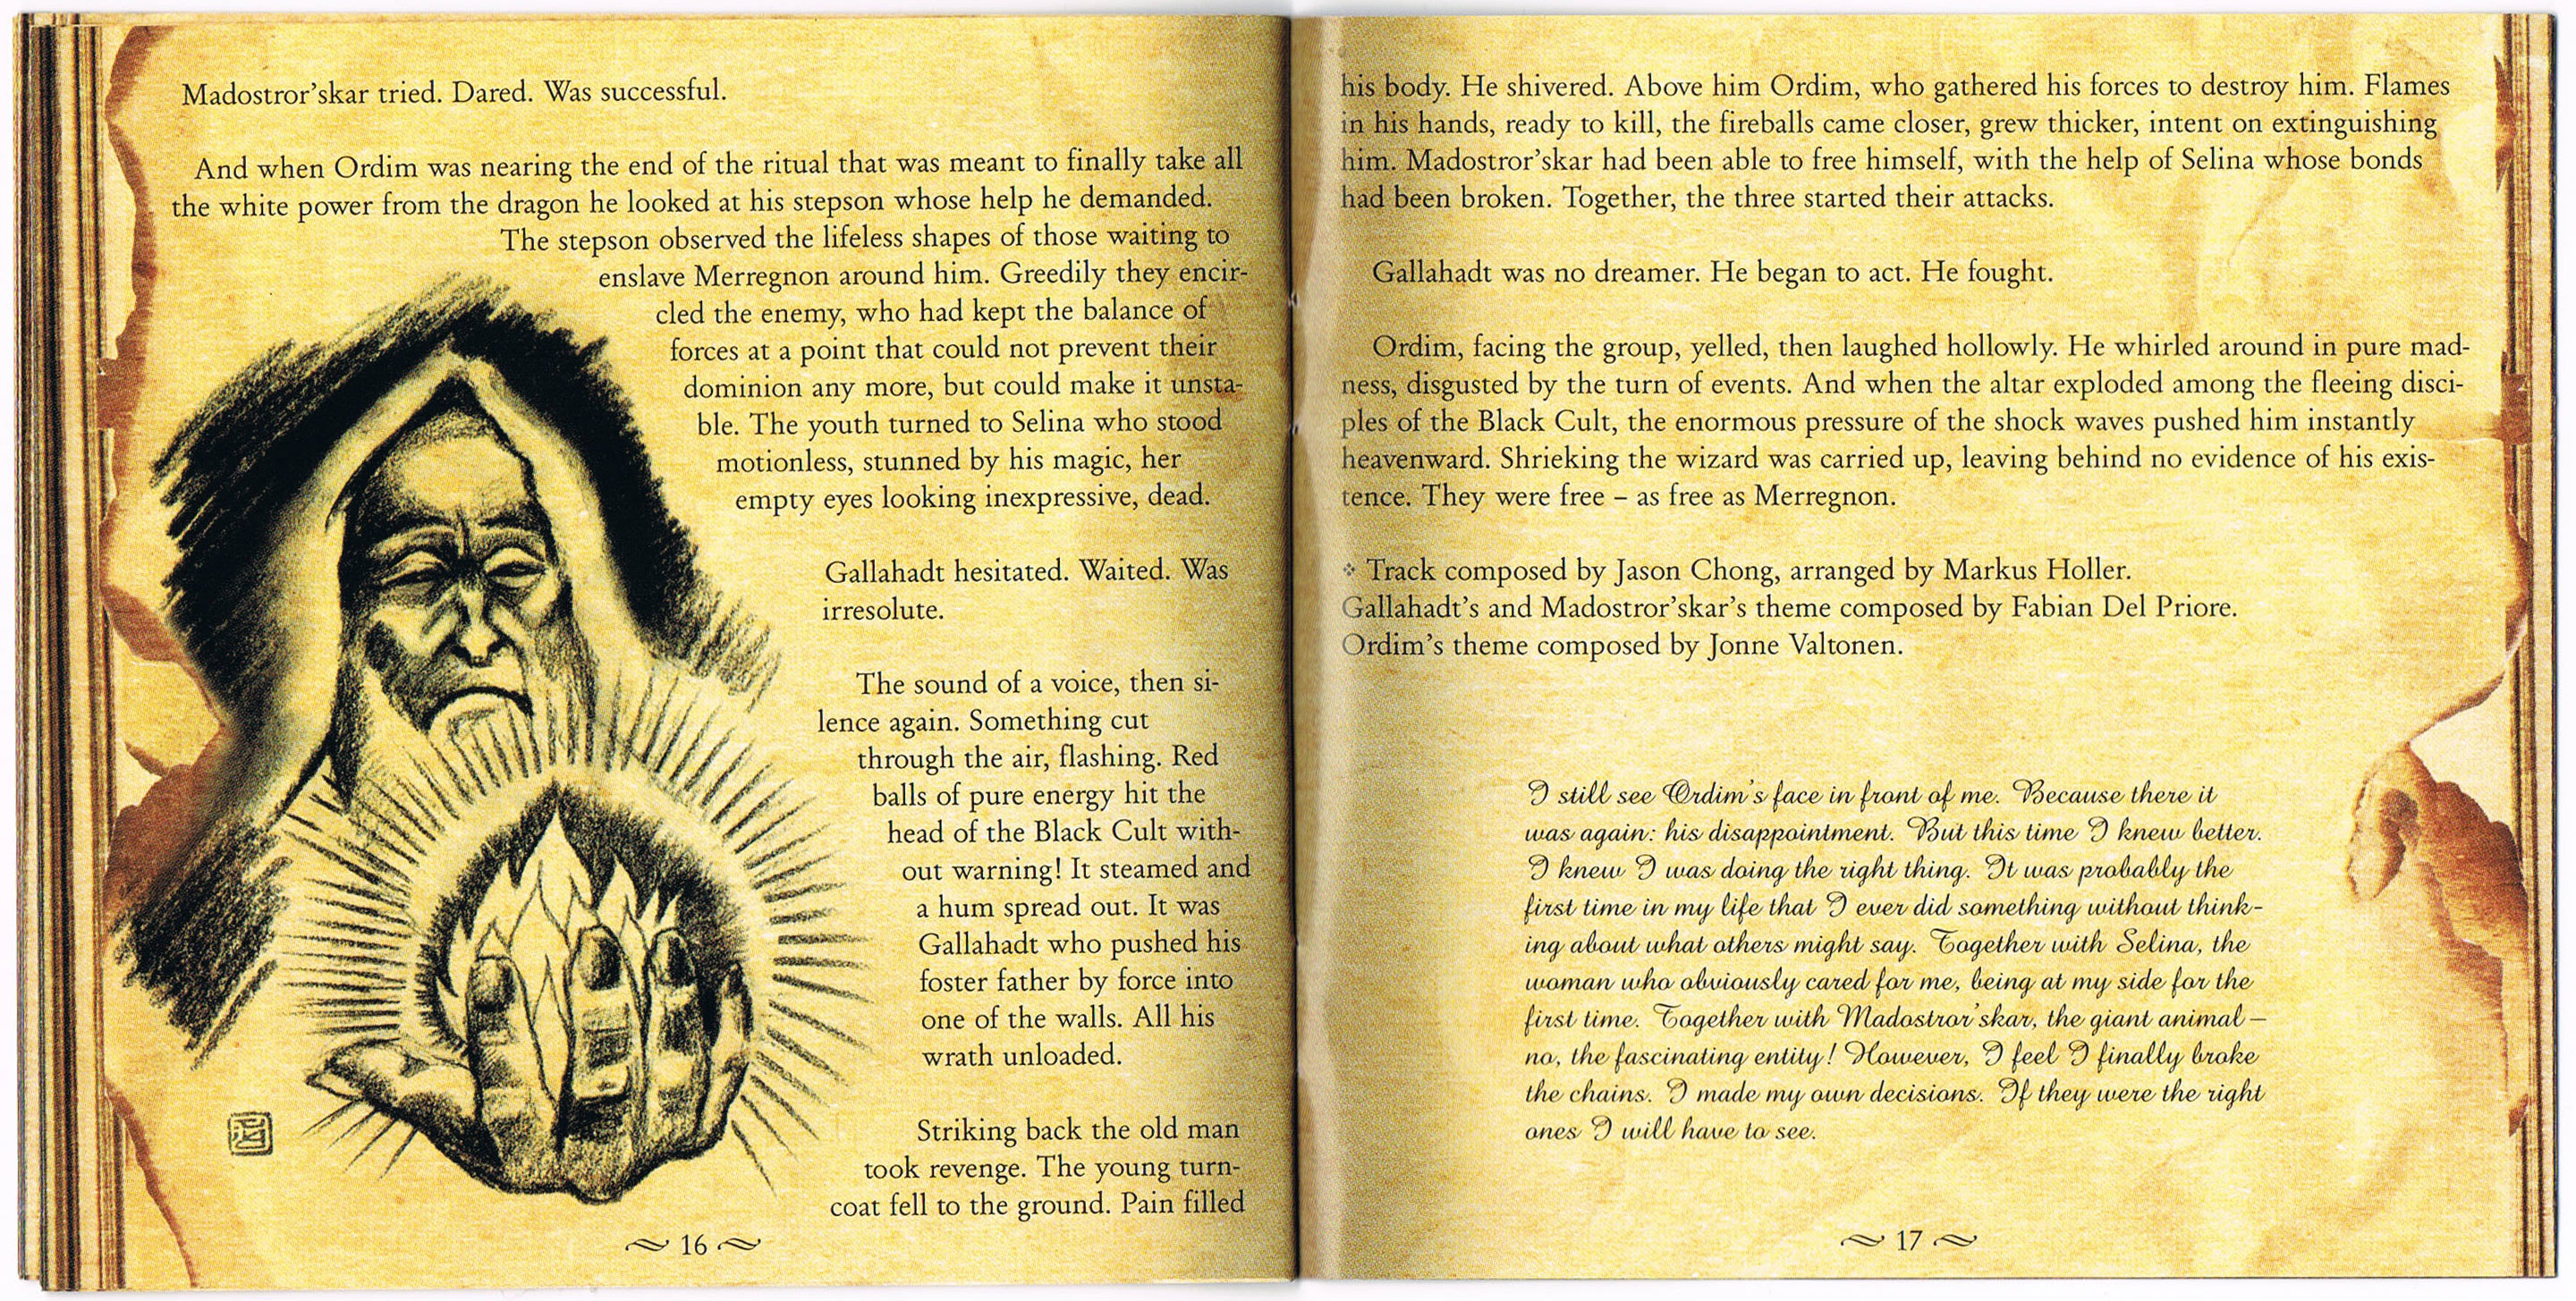 Madostror'skar tried. Dared. Was successful.
And when Ordim was nearing the end of the ritual that was meant to finally take all
the white power from the dragon he looked at his stepson whose help he demanded.
The stepson observed the lifeless shapes of those waiting to
enslave Merregnon around him. Greedily they encir-
cled the enemy, who had kept the balance of
forces at a point that could not prevent their
dominion any more, but could make it unsta-
ble. The youth turned to Selina who stood
motionless, stunned by his magic, her
empty eyes looking inexpressive, dead.
Gallahadt hesitated. Waited. Was
irresolute.
The sound of a voice, then si-
lence again. Something cut
through the air, flashing. Red
balls of pure energy hit the
head of the Black Cult with-
out warning! It steamed and
a hum spread out. It was
Gallahadt who pushed his
foster father by force into
one of the walls. All his
wrath unloaded.
Striking back the old man
took revenge. The young turn-
coat fell to the ground. Pain filled
16
his body. He shivered. Above him Ordim, who gathered his forces to destroy him. Flames
in his hands, ready to kill, the fireballs came closer, grew thicker, intent on extinguishing
him. Madostror'skar had been able to free himself, with the help of Selina whose bonds
had been broken. Together, the three started their attacks.
Gallahadt was no dreamer. He began to act. He fought.
Ordim, facing the group, yelled, then laughed hollowly. He whirled around in pure mad-
ness, disgusted by the turn of events. And when the altar exploded among the fleeing disci-
ples of the Black Cult, the enormous pressure of the shock waves pushed him instantly
heavenward. Shrieking the wizard was carried up, leaving behind no evidence of his exis-
tence. They were free – as free as Merregnon.
Track composed by Jason Chong, arranged by Markus Holler.
Gallahadt's and Madostror'skar's theme composed by Fabian Del Priore.
Ordim's theme composed by Jonne Valtonen.
I still see Ordim's face in front of me. Because there it
was again: his disappointment. But this time I knew better.
I knew I was doing the right thing. It was probably the
first time in my life that I ever did something without think-
ing about what others might say. Together with Selina, the
woman who obviously cared for me, being at my side for the
first time. Together with Madostror'skar, the giant animal –
no, the fascinating entity! However, I feel I finally broke
the chains. I made my own decisions. If they were the right
ones I will have to see.
17